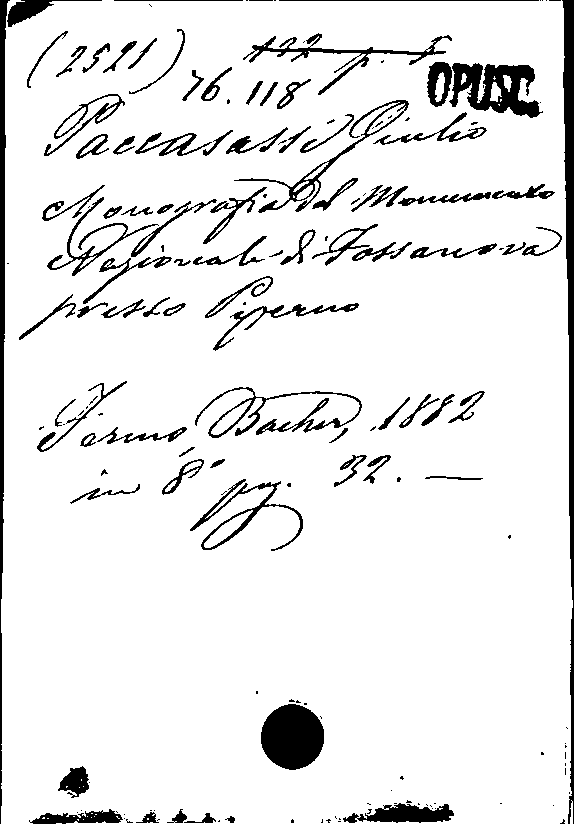 (2521) 132 p. 5
76.118 OPUSC.
Paccasassi Giulio
Monografia del Monumento
Nazionale di Fossanova
presso Piperno
Fermo, Bacher, 1882
in 8° pag. 32. —